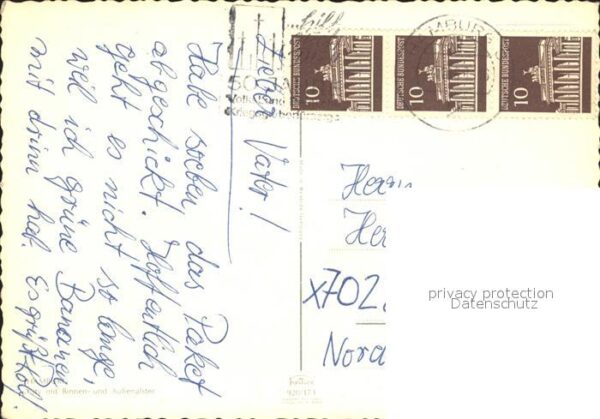 Lieber Vater!
Habe soeben das Paket
abgeschickt. Hoffentlich
geht es nicht so lange,
weil ich grüne Bananen
mit drinn hab. Es grüßt
...hilf
50
Volksbund
Kriegsgräberfürsorge
HAMBURG
10 DEUTSCHE BUNDESPOST
10 DEUTSCHE BUNDESPOST
10 DEUTSCHE BUNDESPOST
Herrn
Her
x702
Nord
privacy protection
Datenschutz
mit Binnen- und Außenalster